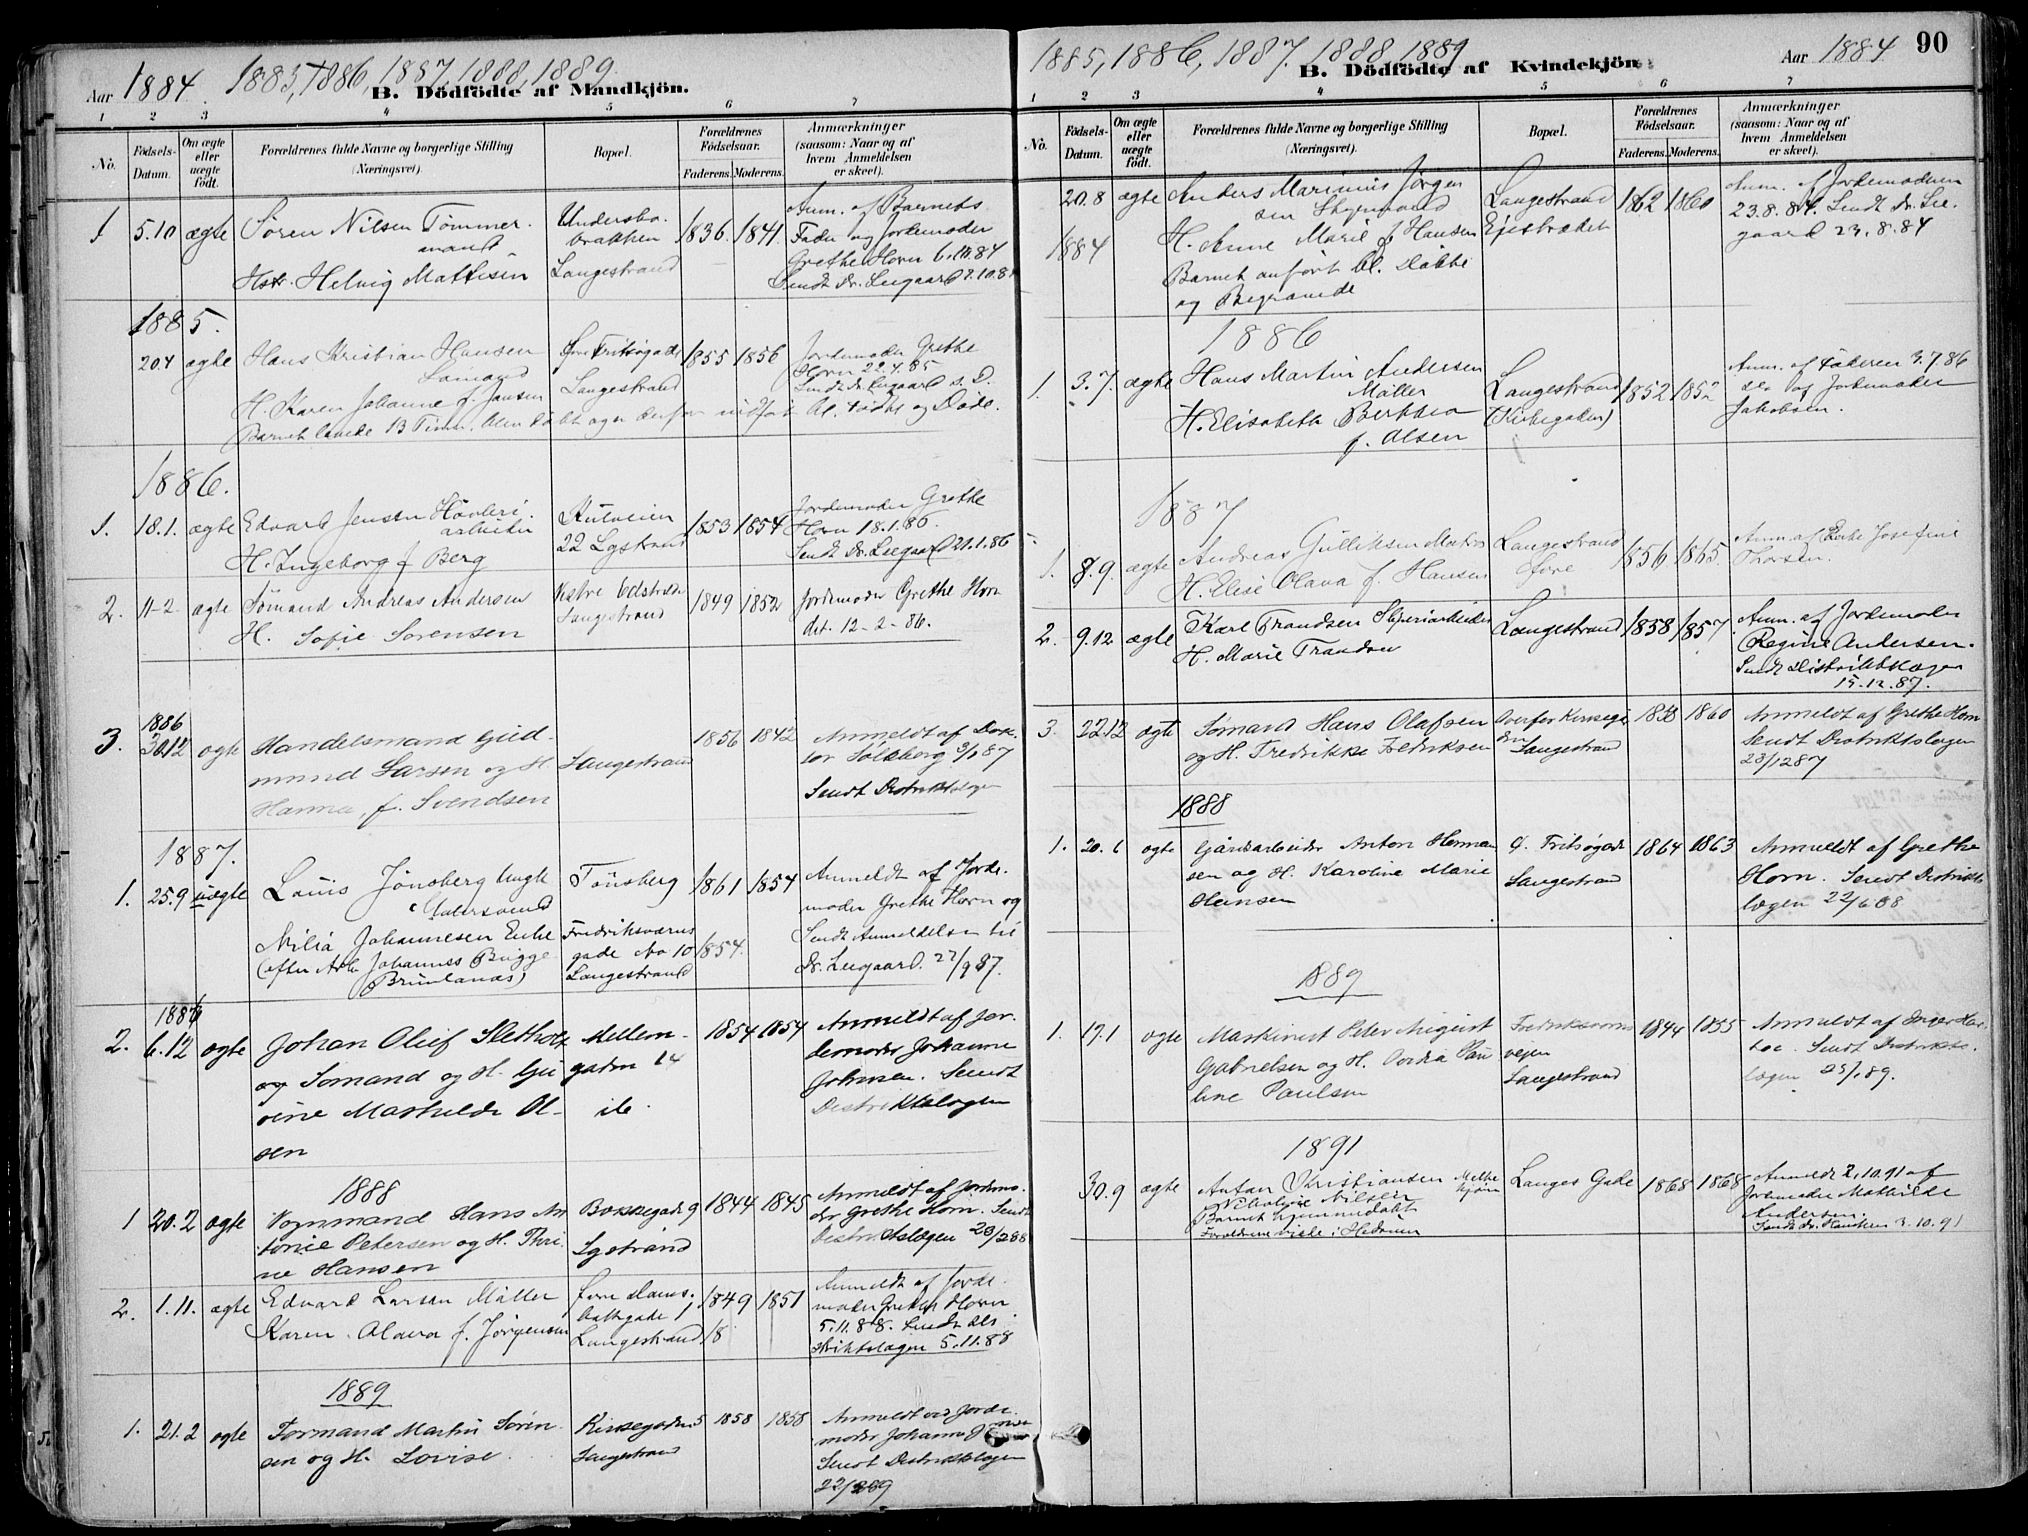 Aar 1884. 1885, 1886, 1887, 1888, 1889.
B. Dödfödte af Mandkjön.
1 2 3 4 5 6 7
No.
Födsels-Datum.
Om ægte eller uægte födt.
Forældrenes fulde Navne og borgerlige Stilling (Næringsvei).
Bopæl.
Forældrenes Födselsaar.
Faderens. Moderens.
Anmærkninger (saasom: Naar og af hvem Anmeldelsen er skeet).
1 5.10 ægte Sören Nilsen Tømmermand
Hstr. Helvig Mattisen
Langestrand
1836. 1841.
Anm. af Barnets
Fader og Jordemoder
Grethe Horn 6.10.84
Sendt Dr. Leegaard
1885.
20.4 ægte Hans Kristian Hansen
Sømand
H. Karen Johanne f. Jansen
Langestrand
1855 1856
Jordemoder Grethe
Horn 22.4.85
Sendt Dr. Leegaard s. D.
1886.
1. 18.1. ægte Edvard Jensen Høvleri
arbeider
H. Ingeborg f. Berg
22 Lgstrand
1853 1854
Jordemoder Grethe
Horn 18.1.86.
Sendt Dr. Leegaard 21.1.86
2. 11-2 ægte Sømand Andreas Andersen
H. Sofie Sorensen
Langestrand
1849 1852
Jordemoder Grethe Horn
dt. 12-2-86.
1886
3. 30.12 ægte Handelsmand Gud-
mund Larsen og H.
Hanna, f. Svendsen
Langestrand
1856 1842
Anmeldt af Dok-
tor Sølsberg 3/1 87
Sendt Distriktslægen
1887.
1. 25.9 uægte Louis Jönsberg Ungk
Tönsberg
1861 1854
Johannesen Enke
Fredriksværns
gade No 10
Langestrand
1854.
Anmeldt af Jorde-
moder Grethe Horn og
Sendt Anmeldelsen til
Dr. Leegaard. 27/9 87.
2. 6.12 ægte Johan Oluf Sletholt
og Sømand og H. Gu
rine Mathilde Ol-
sen
Mellem-
gaden 14
1854 1854
Anmeldt af Jor-
demoder Johanne
Johnsen. Sendt
Distriktslægen
1888
1 20.2 ægte Vognmand Hans An
tonie Petersen og H. Thri-
ne Hansen
Bøkkegade 9
Lgstrand
1844 1845
Anmeldt af Jordemo-
der Grethe Horn. Sendt
Distriktslægen 23/2 88
2. 1.11. ægte Edvard Larsen Møller
Karen Olava f. Jørgensen
Langestrand
1849 1851
18
Anmeldt af Jorde-
moder Grethe Horn
5.11.88. Sendt Dis
triktslægen 5.11.88
1889
1. 21.2 ægte Formand Martin Sören-
sen og H. Lovise
Kirkegaden 5
Langestrand
1858 1858
Anmeldt ved Jorde-
moder Johanne
Sendt Distriktslægen
22/2 89
1885, 1886, 1887, 1888 1889
B. Dödfödte af Kvindekjön.
Aar 1884
90
1 2 3 4 5 6 7
No.
Födsels-Datum.
Om ægte eller uægte födt.
Forældrenes fulde Navne og borgerlige Stilling (Næringsvei).
Bopæl.
Forældrenes Födselsaar.
Faderens. Moderens.
Anmærkninger (saasom: Naar og af hvem Anmeldelsen er skeet).
20.8 ægte Anders Marinius Jörgen
sen
1884
H. Anne Marie f. Hansen
Barnet anført bl. Døbte
og Begravede
Langestrand
1862 1860
Anm. af Jordemoderen
23.8.84. Sendt Dr. Lee-
gaard 23.8.84
1886
1. 3.7. ægte Hans Martin Andersen
Møller
H. Elisabeth
f. Olsen
Langestrand
(Kirkegaden)
1852 1852
Anm. af Faderen 3.7.86
do. af Jordemoder
Jakobsen.
1887
1. 8.9. ægte Andreas Gulliksen
H. Elise Olava f. Hansen
Langestrand
1856 1865.
Anm. af Enke Josefine
Thorsen.
2. 9.12 ægte Karl Trandsen Sliperiarbeider
H. Marie Trandsen
Langestrand
1858 1857.
Anm. af Jordemoder
Regine Andersen.
Sendt Distriktslægen
15.12.87.
3. 22.12 ægte Sømand Hans Olafsen
og H. Fredrikke Fredriksen
Langestrand
1858 1860
Anmeldt af Grethe Horn
Sendt Distriktslægen
23/12 87
1888
1. 20.6 ægte Gårdsarbeider Anton Herman
sen og H. Karoline Marie
Hansen
Ø. Fritsøgade
Langestrand
1864 1863
Anmeldt af Grethe
Horn. Sendt Distrikts
lægen 22/6 88
1889
1. 17.1 ægte Maskinist Peter August
Gabrielsen og H. Pau
line Paulsen
Fredriksværns
vejen
Langestrand
1844 1855
Anmeldt af Inger
Sendt Distrikts-
lægen
1891
30.9 ægte Anton Kristiansen
Nikoline Nilsen
Barnet hjemmedøbt
Langes Gade
1868 1868
Anmeldt 2.10.91 af
Jordmoder Mathilde
Andersen.
Sendt Dr. 3.10.91